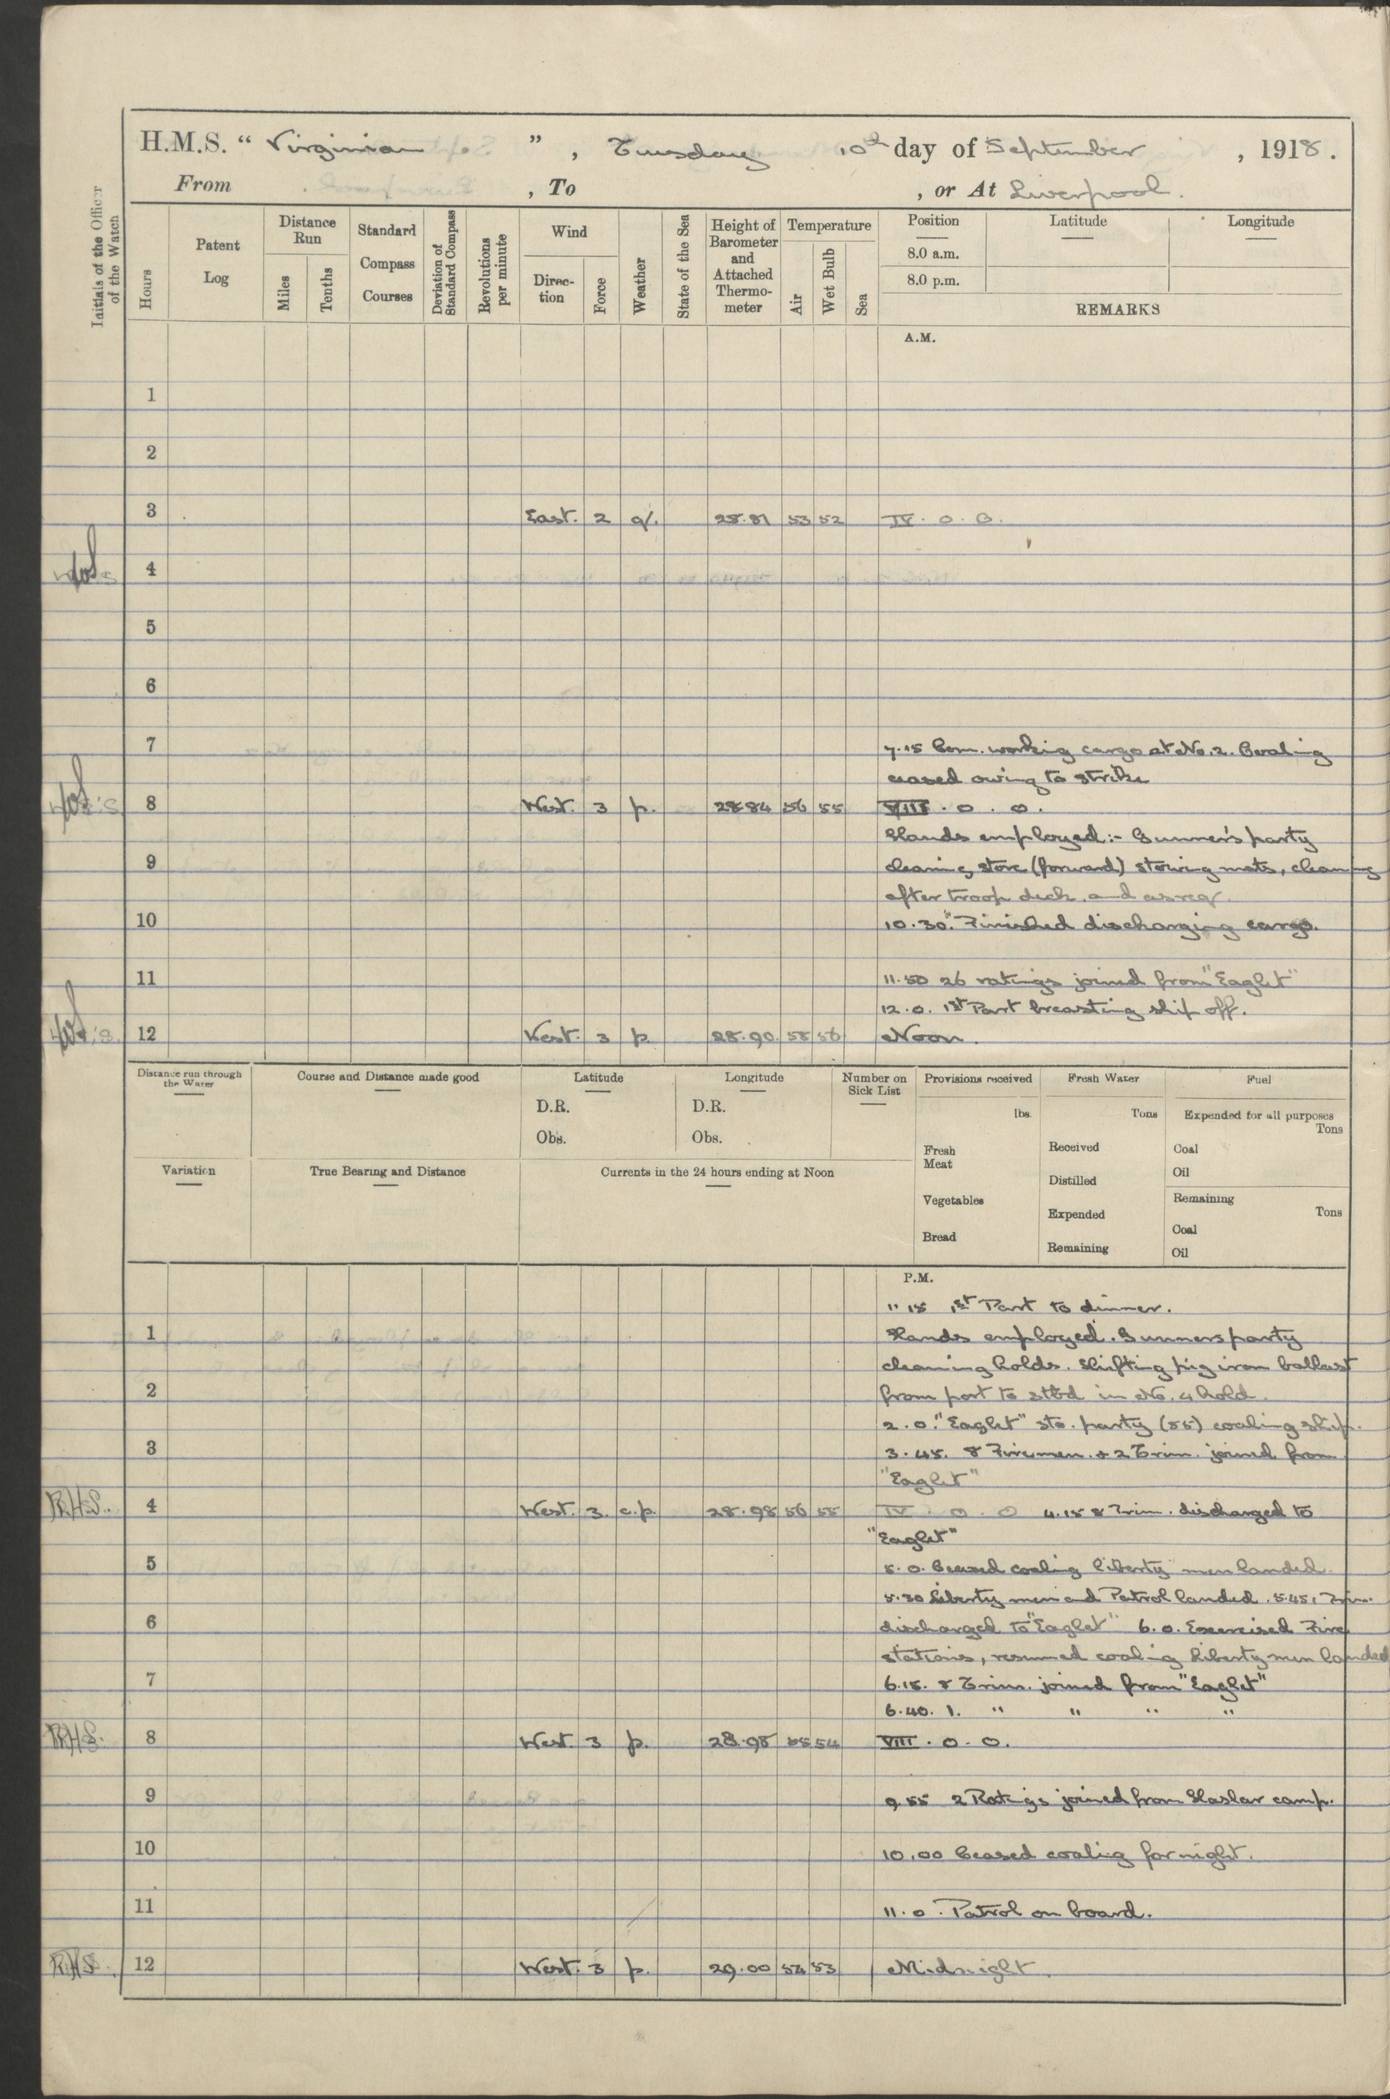 H.M.S. " Virginian " , Tuesday 10th day of September , 1918 .
From , To , or At Liverpool .
Initials of the Officer of the Watch
Hours
Patent Log
Distance Run
Miles
Tenths
Standard Compass Courses
Deviation of Standard Compass
Revolutions per minute
Wind
Direc- tion
Force
Weather
State of the Sea
Height of Barometer and Attached Thermo- meter
Temperature
Air
Wet Bulb
Sea
Position
Latitude
Longitude
8.0 a.m.
8.0 p.m.
REMARKS
A.M.
1
2
3 East. 2 28.81 53 52 IV . 0 . 0.
4
5
6
7 7.15 Com. working cargo at No. 2. Coaling
ceased owing to strike
8 West. 3 p. 28 84 56 55 VIII . 0 . 0 .
Hands employed :- Gunner's party
9 cleaning store (forward) stowing mats, cleaning
after troop deck and as req.
10 10.30. Finished discharging cargo.
11 11.50 26 ratings joined from "Eaglet"
12.0. 1st Part breasting ship off.
12 West. 3 p. 28.90 58 56 Noon .
Distance run through the Water
Course and Distance made good
Latitude
D.R.
Obs.
Longitude
D.R.
Obs.
Number on Sick List
Provisions received
lbs.
Fresh Meat
Vegetables
Bread
Fresh Water
Tons
Received
Distilled
Expended
Remaining
Fuel
Expended for all purposes
Tons
Coal
Oil
Remaining
Tons
Coal
Oil
Variation
True Bearing and Distance
Currents in the 24 hours ending at Noon
P.M.
" 15 1st Part to dinner.
1 Hands employed. Gunners party
cleaning holds. Shifting pig iron ballast
2 from port to stbd in No. 4 hold.
2.0. "Eaglet" sto. party (55) coaling ship.
3 3.45. 8 Firemen. + 2 Trim. joined from
"Eaglet"
R.H.S. 4 West. 3. c.p. 28.98 56 55 IV . 0 . 0 4.15 8 Trim. discharged to
"Eaglet"
5 5.0. Ceased coaling liberty men landed.
5.30 Liberty men and Patrol landed. 5.45 1 Trim.
6 discharged to "Eaglet" 6.0. Exercised Fire
stations, resumed coaling liberty men landed
7 6.15. 8 Trim. joined from "Eaglet"
6.40. 1. " " " "
R.H.S. 8 West. 3 p. 28.98 55 54 VIII . 0 . 0.
9 9.55 2 Ratings joined from Haslar camp.
10 10.00 Ceased coaling for night.
11 11.0. Patrol on board.
R.H.S. 12 West. 3 p. 29.00 54 53 Midnight.